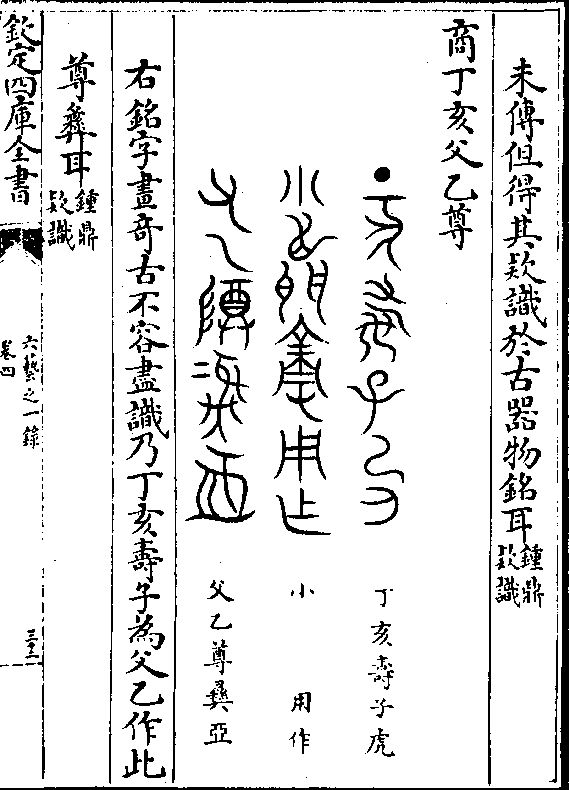 未傳但得其欵識於古器物銘耳鍾鼎欵識
商丁亥父乙尊
丁亥壽子虎
小 用作
父乙尊彝亞
右銘字畫奇古不容盡識乃丁亥壽子為父乙作此
尊彝耳鍾鼎欵識
欽定四庫全書
六藝之一錄
卷四
三十二